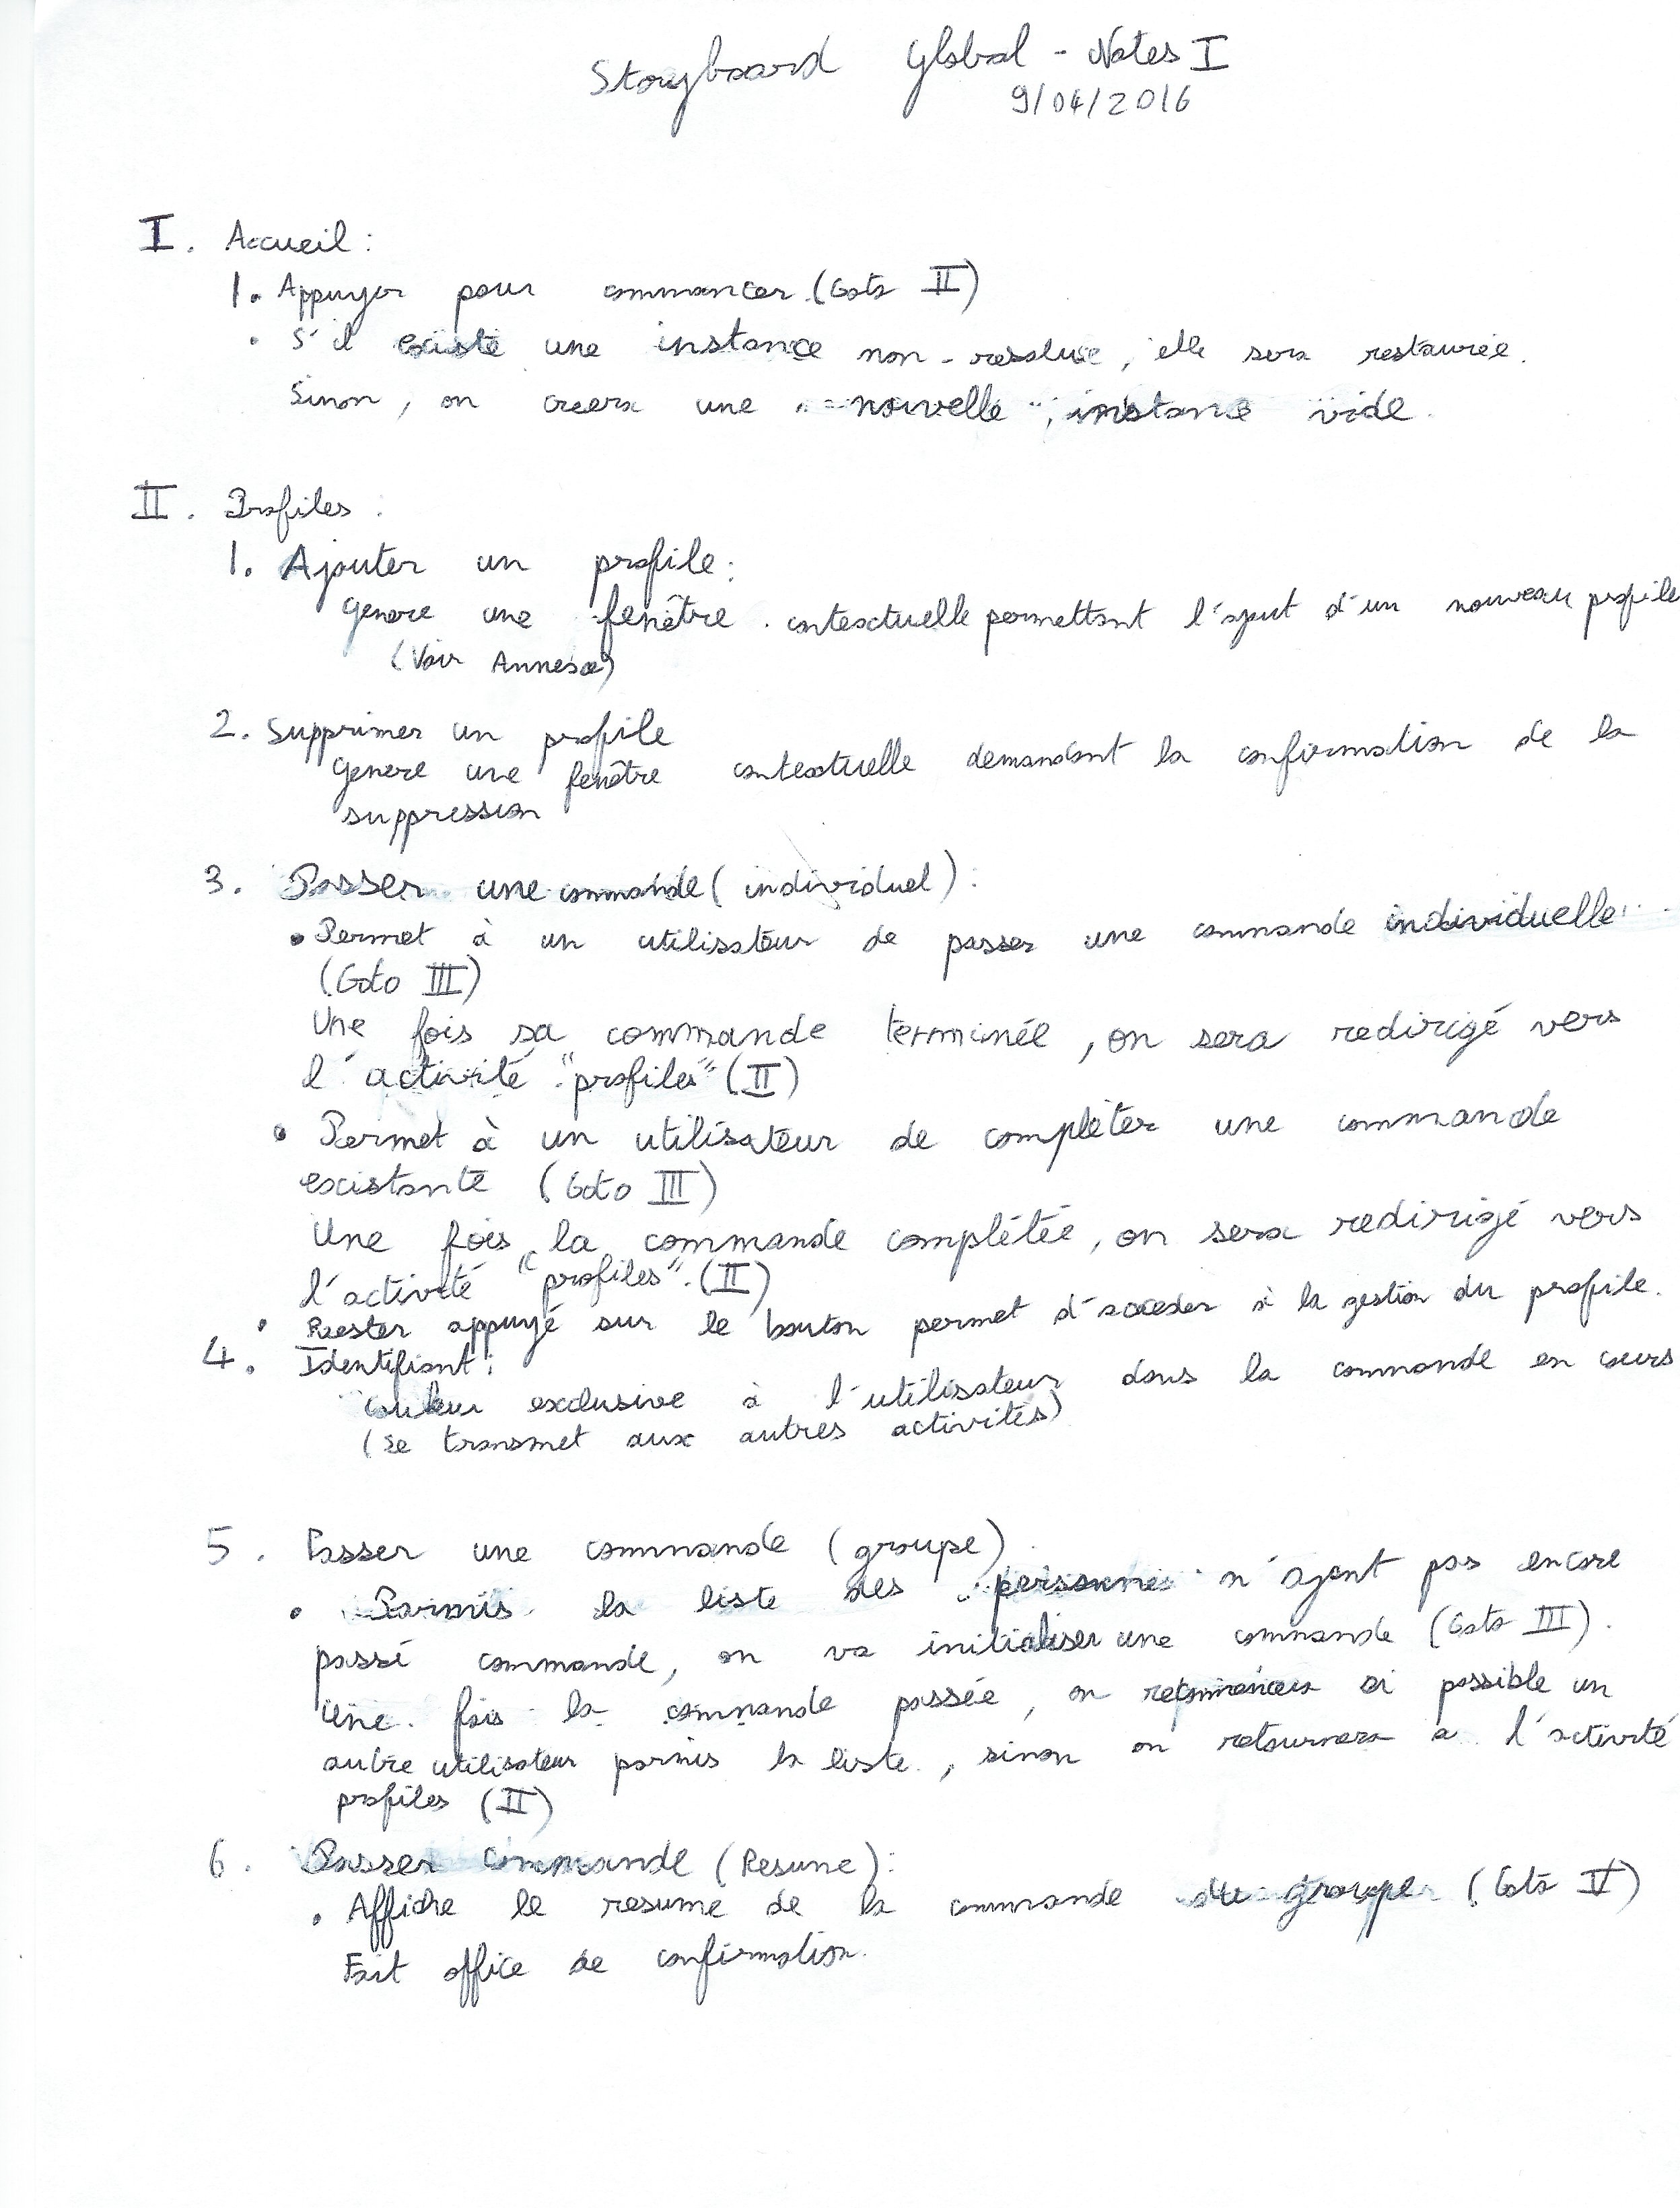 Storyboard Global - Notes I
9/04/2016
I. Accueil :
1. Appuyer pour commancer (Goto II)
• S'il existe une instance non-resolue, elle sera restaurée.
Sinon, on creera une nouvelle instance vide.
II. Profiles :
1. Ajouter un profile :
Genere une fenêtre contextuelle permettant l'ajout d'un nouveau profile
(Voir Annexe)
2. Supprimer un profile
Genere une fenêtre contextuelle demandant la confirmation de la
suppression
3. Passer une commande (individuel) :
• Permet à un utilisateur de passer une commande individuelle
(Goto III)
Une fois sa commande terminée, on sera redirigé vers
l'activité "profiles" (II)
• Permet à un utilisateur de compléter une commande
existante (Goto III)
Une fois la commande complétée, on sera redirigé vers
l'activité "profiles". (II)
• Rester appuyé sur le bouton permet d'acceder à la gestion du profile.
4. Identifiant :
Couleur exclusive à l'utilisateur dans la commande en cours
(se transmet aux autres activités)
5. Passer une commande (groupe)
• Parmis la liste des personnes n'ayant pas encore
passé commande, on va initialiser une commande (Goto III).
Une fois la commande passée, on si possible un
autre utilisateur parmis la liste, sinon on retournera a l'activité
profiles (II)
6. Passer commande (Resume) :
• Affiche le resume de la commande du groupe (Goto V)
Fait office de confirmation.